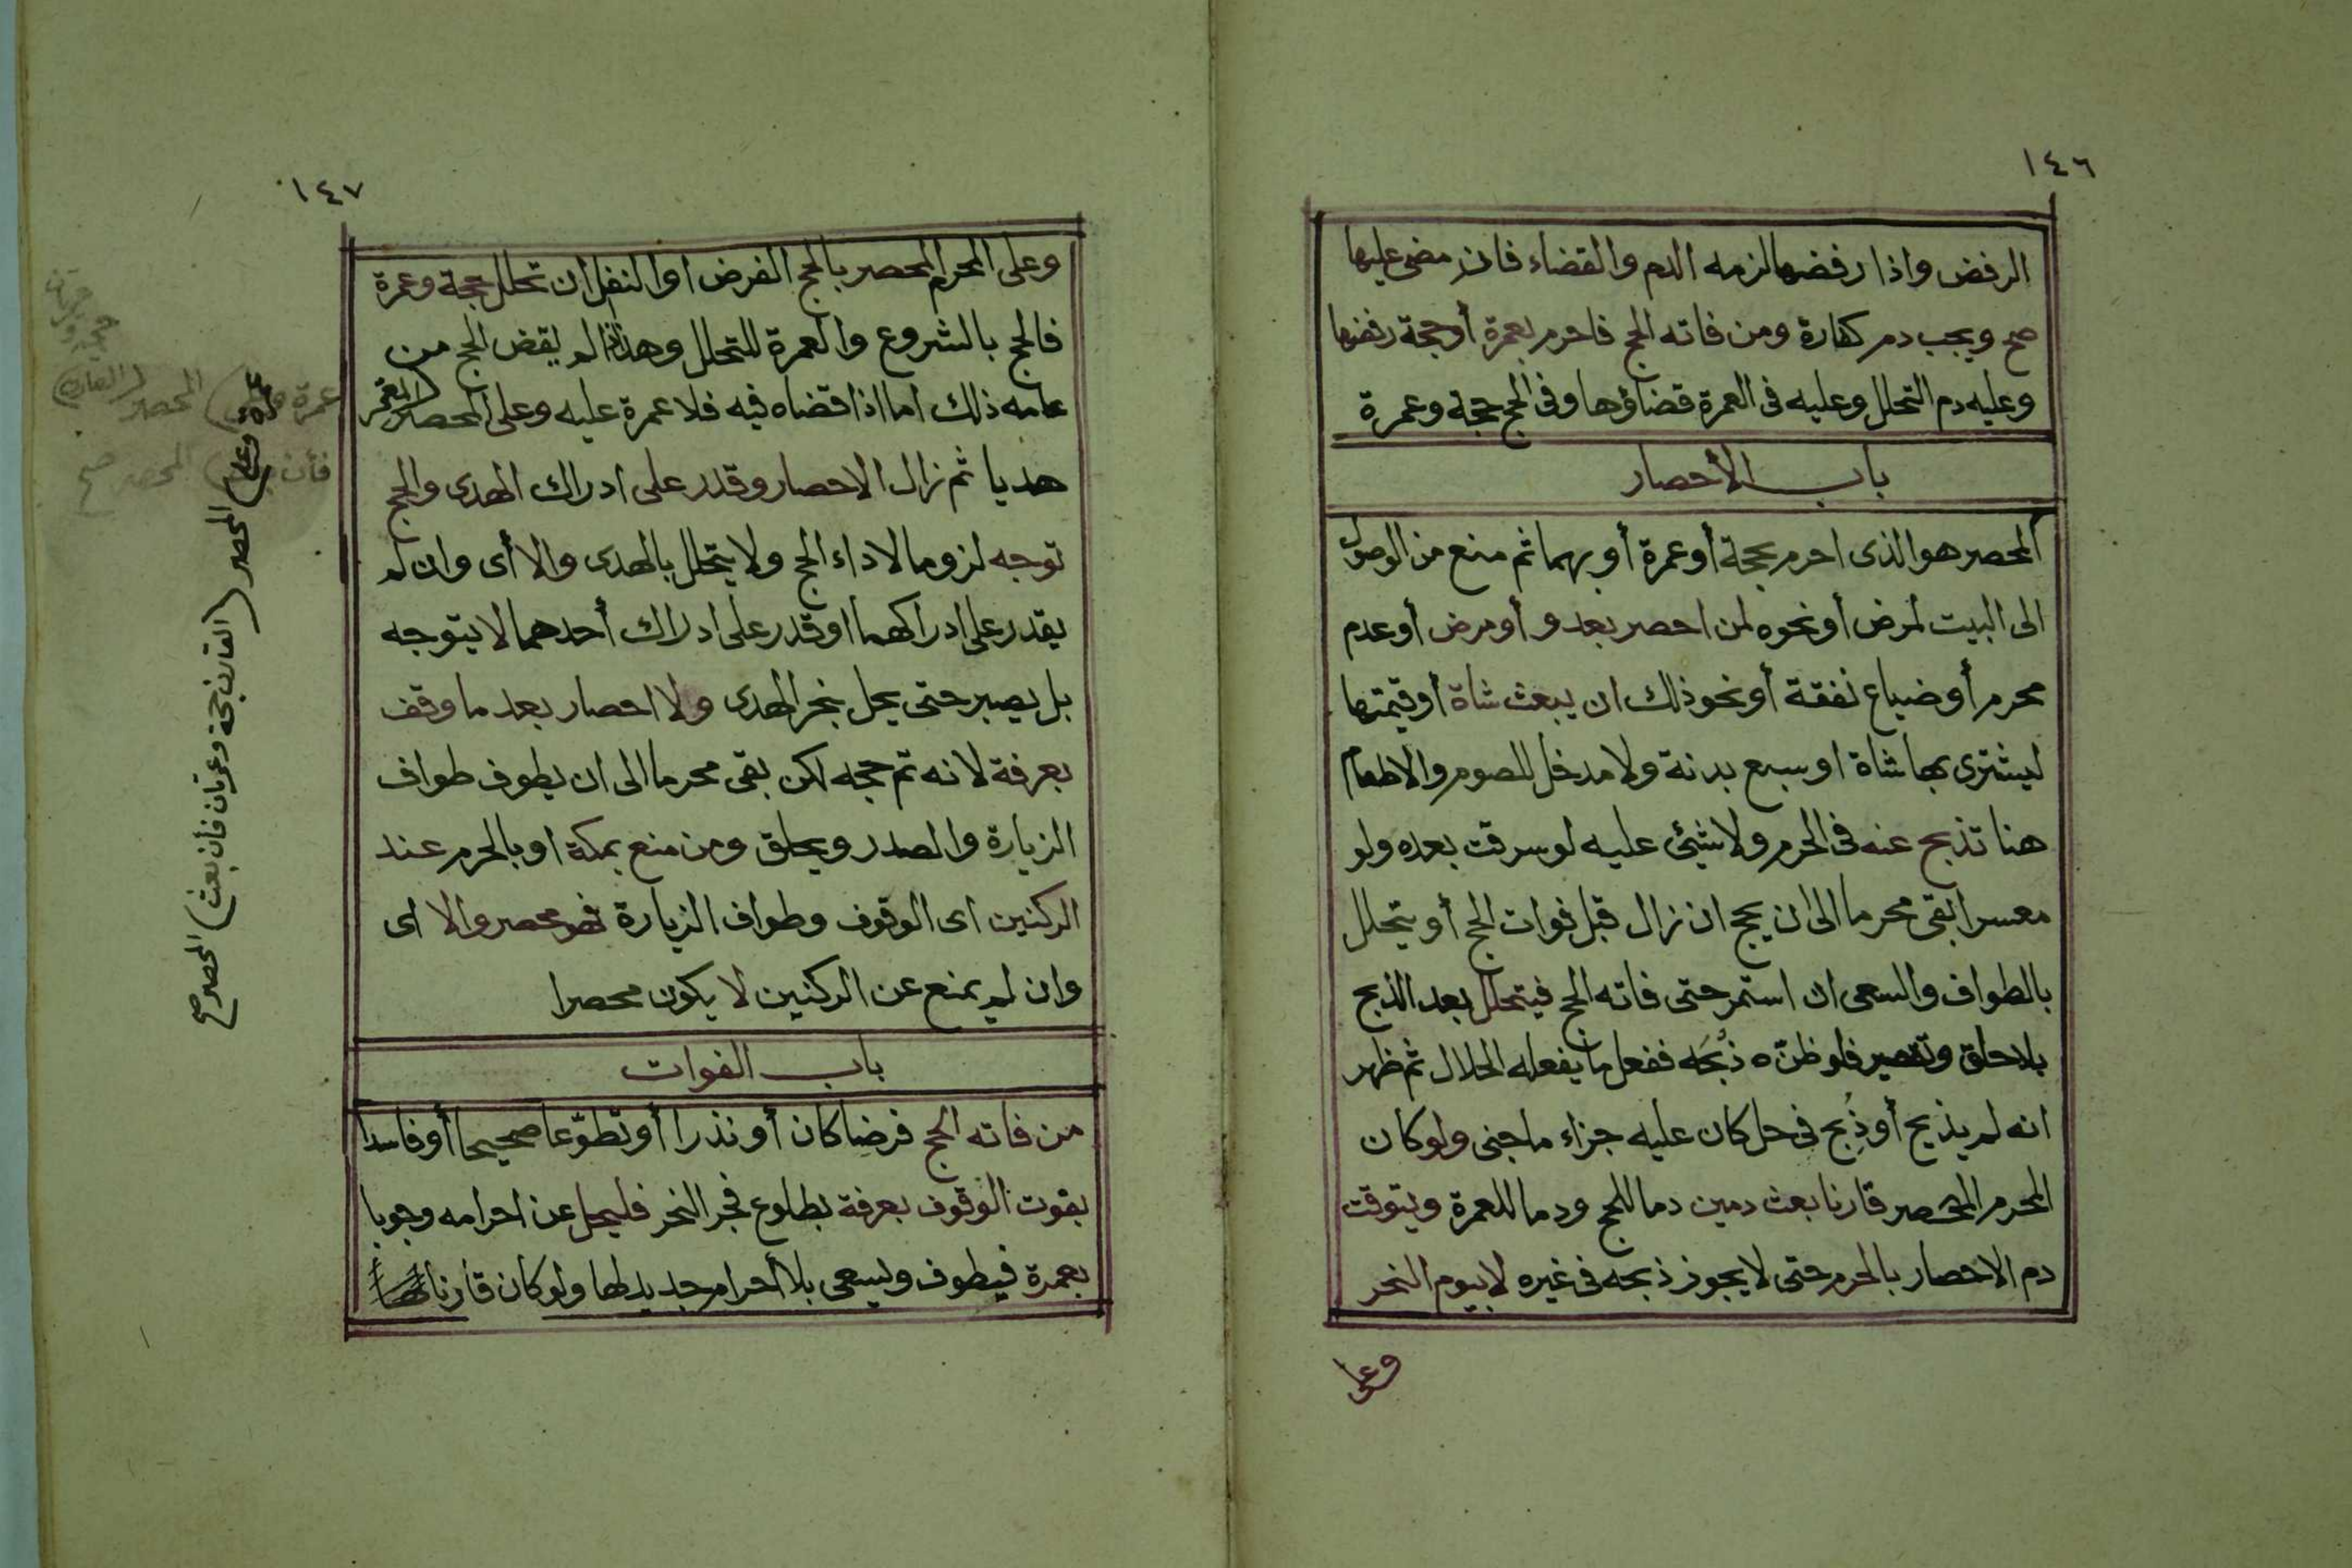 ١٤٦
الرفض واذا رفضها لزمه الدم والقضاء فان مضى عليها
صح ويجب دم كفارة ومن فاته الحج فاحرم بعمرة أو حجة رفضها
وعليه دم التحلل وعليه فى العمرة قضاؤها وفى الحج حجة وعمرة
باب الأحصار
المحصر هو الذى احرم بحجة أو عمرة أو بهما ثم منع من الوصول
الى البيت لمرض أو نحوه لمن احصر بعدو أو مرض أو عدم
محرم أو ضياع نفقة أو نحو ذلك ان يبعث شاة أو قيمتها
ليشترى بها شاة او سبع بدنة ولا مدخل للصوم والاطعام
هنا تذبح عنه فى الحرم ولا شيئ عليه لو سرقت بعده ولو
معسرا بقى محرما الى ان يحج ان زال قبل فوات الحج أو يتحلل
بالطواف والسعى ان استمر حتى فاته الحج فيتحلل بعد الذبح
بلا حلق وتقصير فلو ظنّ ه ذُبحَه ففعل ما يفعله الحلال ثم ظهر
انه لم يذبح أو ذُبح فى حل كان عليه جزاء ما جنى ولو كان
المحرم المحصر قارنا بعث دمين دما للحج ودما للعمرة ويتوقت
دم الاحصار بالحرم حتى لا يجوز ذبحه فى غيره لا بيوم النحر
وعلى
١٤٧
وعلى المحرم المحصر بالحج الفرض او النفل ان تحلل حجة وعمرة
فالحج بالشروع والعمرة للتحلل وهذا لم يقض الحج من
عامه ذلك اما اذا قضاه فيه فلا عمرة عليه وعلى المحصر المعتمر
هديا ثم زال الاحصار وقدر على ادراك الهدى والحج
توجه لزوما لاداء الحج ولا يتحلل بالهدى والا أى وان لم
يقدر على ادراكهما او قدر على ادراك أحدهما لا يتوجه
بل يصبر حتى يحل بنحر الهدى ولا احصار بعد ما وقف
بعرفة لانه تم حجه لكن بقى محرما الى ان يطوف طواف
الزيارة والصدر ويحلق ومن منع بمكة او بالحرم عند
الركنين اى الوقوف وطواف الزيارة فهو محصر والا اى
وان لم يمنع عن الركنين لا يكون محصرا
باب الفوات
من فاته الحج فرضا كان أو نذرا أو تطوّعا صحيحا أو فاسدا
بفوت الوقوف بعرفة بطلوع فجر النحر فليحل عن احرامه وجوبا
بعمرة فيطوف ويسعى بلا أحرام جديد لها ولو كان قارنا
عمرة وعلى المحصر القارن
فأن المحصر صح
عمرة وعلى المحصر (القارن حجة وعمرتان فأن بعث) المحصر صح